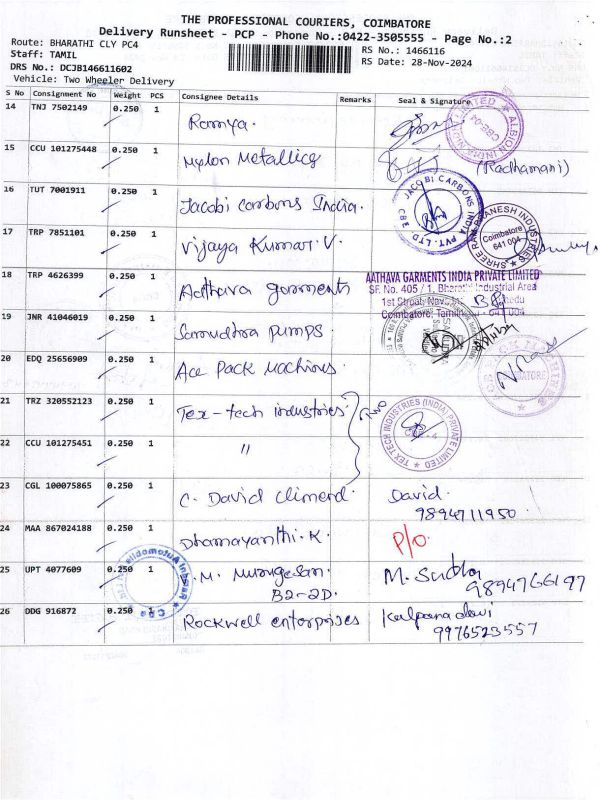 THE PROFESSIONAL COURIERS, COIMBATORE
Delivery Runsheet - PCP - Phone No.:0422-3505555 - Page No.:2
Route: BHARATHI CLY PC4
Staff: TAMIL
DRS No.: DCJB146611602
Vehicle: Two Wheeler Delivery
RS No.: 1466116
RS Date: 28-Nov-2024
S No Consignment No Weight PCS Consignee Details Remarks Seal & Signature
14 TNJ 7502149 0.250 1 Ramya.
15 CCU 101275448 0.250 1 Mylon Metallics (Radhamani)
16 TUT 7001911 0.250 1 Jacobi carbons India.
JACOBI CARBONS INDIA PVT. LTD CBE
17 TRP 7851101 0.250 1 Vijaya Kumar. V.
Coimbatore
641 004
18 TRP 4626399 0.250 1 Aathava garments
AATHAVA GARMENTS INDIA PRIVATE LIMITED
SF. No. 405 / 1, Bharathi Industrial Area
1st Street,
Coimbatore, 641 004
19 JNR 41046019 0.250 1 Samudhra pumps.
20 EDQ 25656909 0.250 1 Ace Pack Machines.
21 TRZ 320552123 0.250 1 Tex-tech industries. Two
TEX TECH INDUSTRIES (INDIA) PRIVATE LIMITED
22 CCU 101275451 0.250 1 "
23 CGL 100075865 0.250 1 C. David climend. David.
9894711950
24 MAA 867024188 0.250 1 Dhamayanthi. K. P/O
25 UPT 4077609 0.250 1 M. Murugesan. M. Sudha
B2-2D. 9894766197
26 DDG 916872 0.250 1 Rockwell enterprises Kalpana devi
9976523557